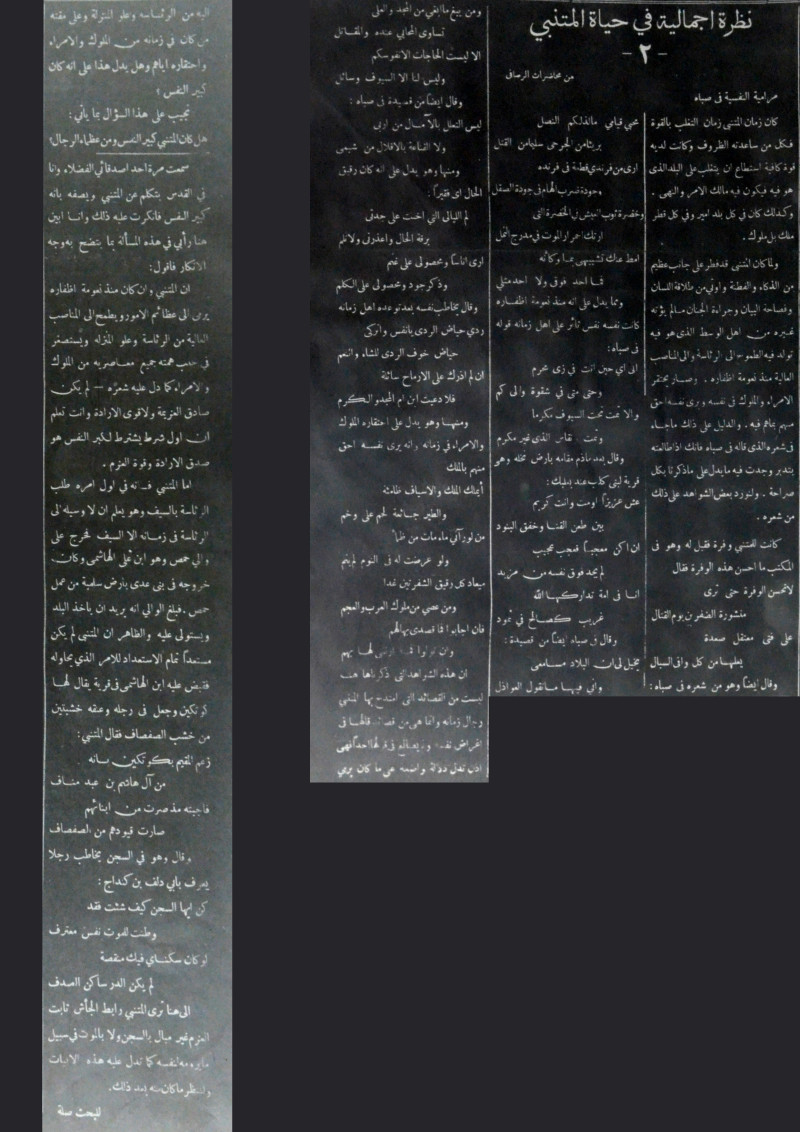 نظرة اجمالية في حياة المتنبي
- ٢ -
من محاضرات الرصافي
مرامية النفسية في صباه
كان زمان المتنبي زمان التغلب بالقوة
فكل من ساعدته الظروف وكانت لديه
قوة كافية استطاع ان يتغلب على البلد الذى
هو فيه فيكون فيه مالك الامر والنهى .
وكذلك كان في كل بلد امير وفي كل قطر
ملك بل ملوك .
ولما كان المتنبي قد فطر على جانب عظيم
من الذكاء والفطنة واوتي من طلاقة اللسان
وفصاحة البيان وجراءة الجنان مالم يؤته
غيره من اهل الوسط الذى هو فيه
تولد فيه الطموح الى الرئاسة والى المناصب
العالية منذ نعومة اظفاره . وصار يحتقر
الامراء والملوك في نفسه ويرى نفسه احق
منهم بماهم فيه . والدليل على ذلك ماجاء
في شعره الذى قاله في صباه فانك اذا طالعته
بتدبر وجدت فيه ما يدل على ماذكرنا بكل
صراحة . ولنورد بعض الشواهد على ذلك
من شعره .
كانت للمتنبي وفرة فقيل له وهو في
المكتب ما احسن هذه الوفرة فقال
لاتحسن الوفرة حتى ترى
منشورة الضفرين يوم القتال
على فتى معتقل صعدة
يعلها من كل وافى السبال
وقال ايضاً وهو من شعره في صباه :
محبي قيامي مالذلكم النصل
بريئا من الجرحى سليما من القتل
ارى من فرندي قطعة في فرنده
وجودة ضرب الهام في جودة الصقل
وخضرة ثوب العيش في الخضرة التى
ارتك احمرار الموت في مدرج النمل
امط عنك تشبيهي بما وكأنه
فما احد فوقى ولا احد مثلي
ومما يدل على انه منذ نعومة اظفاره
كانت نفسه نفس ثائر على اهل زمانه قوله
في صباه :
الى اي حين انت في زى محرم
وحتى متى في شقوة والى كم
والا تمت تحت السيوف مكرما
تمت وتقاس الذى غير مكرم
وقال بعد ماذم مقامه بارض نخله وهى
قرية لبنى كلب عند بعلبك :
عش عزيزاً او مت وانت كريم
بين طعن القنا وخفق البنود
ان اكن معجباً فعجب عجيب
لم يجد فوق نفسه من مزيد
انا في امة تداركها الله
غريب كصالح في ثمود
وقال في صباه ايضاً من قصيدة :
يخيل لى ان البلاد مسامعى
واني فيها ماتقول العواذل
ومن يبغ ما ابغي من المجد والعلى
تساوى المحايى عنده والمقاتل
الا ليست الحاجات الا نفوسكم
وليس لنا الا السيوف وسائل
وقال ايضاً من قصيدة في صباه :
ليس التعلل بالآمال من اربى
ولا القناعة بالاقلال من شيمى
ومنها وهو يدل على انه كان رقيق
الحال اى فقيراً :
لم الليالى التي اخنت على جدتى
برقة الحال واعذرنى ولاتلم
ارى اناساً ومحصولى على غنم
وذكر جود ومحصولى على الكلم
وقال يخاطب نفسه بعد توعده اهل زمانه
ردي حياض الردى يا نفس واتركى
حياض خوف الردى للشاء والنعم
ان لم اذرك على الارماح سائلة
فلا دعيت ابن ام المجد والكرم
ومنها وهو يدل على احتقاره الملوك
والامراء في زمانه وانه يرى نفسه احق
منهم بالملك
أيملك الملك والاسياف ظامئة
والطير جائعة لحم على وضم
من لورآني ماء مات من ظمأ
ولو عرضت له في النوم لم ينم
ميعاد كل رقيق الشفرتين غدا
ومن عصى من ملوك العرب والعجم
فان اجابوا فما قصدى بها لهم
وان تولوا فما ارضى لها بهم
ان هذه الشواهد التى ذكرناها هنا
ليست من القصائد التى امتدح بها المتنبي
رجال زمانه وانما هي من قصائد قالها في
اغراض نفسه ولم يخاطب في قولها احداً فهى
اذن تدل دلالة واضحة على ما كان يرمي
اليه من الرئاسه وعلو المنزلة وعلى مقته
من كان في زمانه من الملوك والامراء
واحتقاره اياهم وهل يدل هذا على انه كان
كبير النفس ؟
نجيب على هذا السؤال بما يأتي :
هل كان المتنبي كبير النفس ومن عظماء الرجال؟
سمعت مرة احد اصدقائي الفضلاء وانا
في القدس يتكلم عن المتنبي ويصفه بانه
كبير النفس فانكرت عليه ذلك وانا ابين
هنا رأيي في هذه المسألة بما يتضح به وجه
الانكار فاقول :
ان المتنبي وان كان منذ نعومة اظفاره
يرمي الى عظائم الامور ويطمح الى المناصب
العالية من الرئاسة وعلو المنزله ويستصغر
في جنب همته جميع معاصريه من الملوك
والامراء كما دل عليه شعره — لم يكن
صادق العزيمة ولاقوى الارادة وانت تعلم
ان اول شرط يشترط لكبر النفس هو
صدق الارادة وقوة العزم .
اما المتنبي فانه في اول امره طلب
الرئاسة بالسيف وهو يعلم ان لا وسيلة الى
الرئاسة في زمانه الا السيف فخرج على
والي حمص وهو ابن على الهاشمى وكان
خروجه في بنى عدى بارض سلمية من عمل
حمص . فبلغ الوالي انه يريد ان ياخذ البلد
ويستولي عليه والظاهر ان المتنبي لم يكن
مستعداً تمام الاستعداد للامر الذي يحاوله
فقبض عليه ابن الهاشمى في قرية يقال لها
كوتكين وجعل في رجله وعنقه خشبتين
من خشب الصفصاف فقال المتنبي :
زعم المقيم بكوتكين بانه
من آل هاشم بن عبد مناف
فاجبته مذ صرت من ابنائهم
صارت قيودهم من الصفصاف
وقال وهو في السجن يخاطب رجلا
يعرف بابي دلف بن كنداج :
كن ايها السجن كيف شئت فقد
وطنت للموت نفس معترف
لو كان سكناي فيك منقصة
لم يكن الدر ساكن الصدف
الى هنا نرى المتنبي رابط الجأش ثابت
العزم غير مبال بالسجن ولا بالموت في سبيل
مايرومه لنفسه كما تدل عليه هذه الابيات
ولننظر ما كان منه بعد ذلك .
للبحث صلة